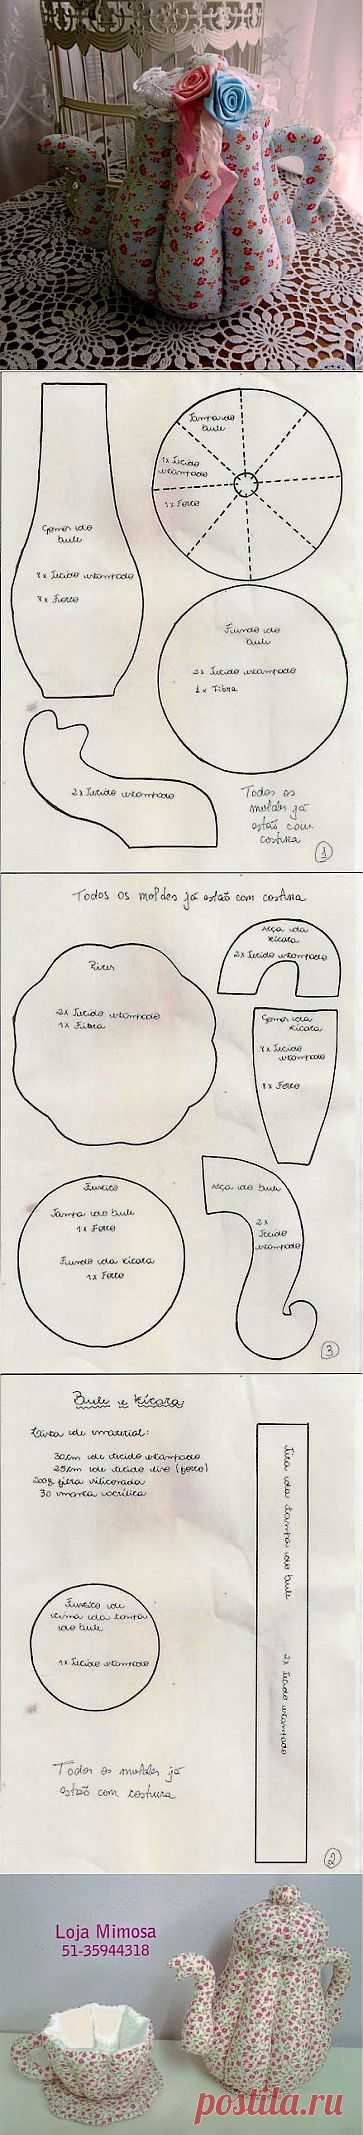 Tampa do
bule
1x Tecido
estampado
1x Forro
Gomos do
bule
7x Tecido estampado
7x Forro
Fundo do
bule
2x Tecido estampado
1x Fibra
2x Tecido estampado
Todos os
moldes já
estão com
costura
1
Todos os moldes já estão com costura
Pires
2x Tecido estampado
1x Fibra
Alça da
xícara
2x Tecido estampado
Gomos da
xícara
7x Tecido
estampado
7x Forro
Fuxico
Tampa do bule
1x Forro
Fundo da xícara
1x Forro
Alça do bule
2x
Tecido
estampado
3
Bule e xícara
Lista de material:
30cm de tecido estampado
25cm de tecido liso (forro)
200g fibra siliconada
30 manta acrílica
Fuxico de
cima da tampa
do bule
1x Tecido estampado
Tira da tampa do bule
2x Tecido estampado
Todos os moldes já
estão com costura
2
Loja Mimosa
51-35944318
postila.ru